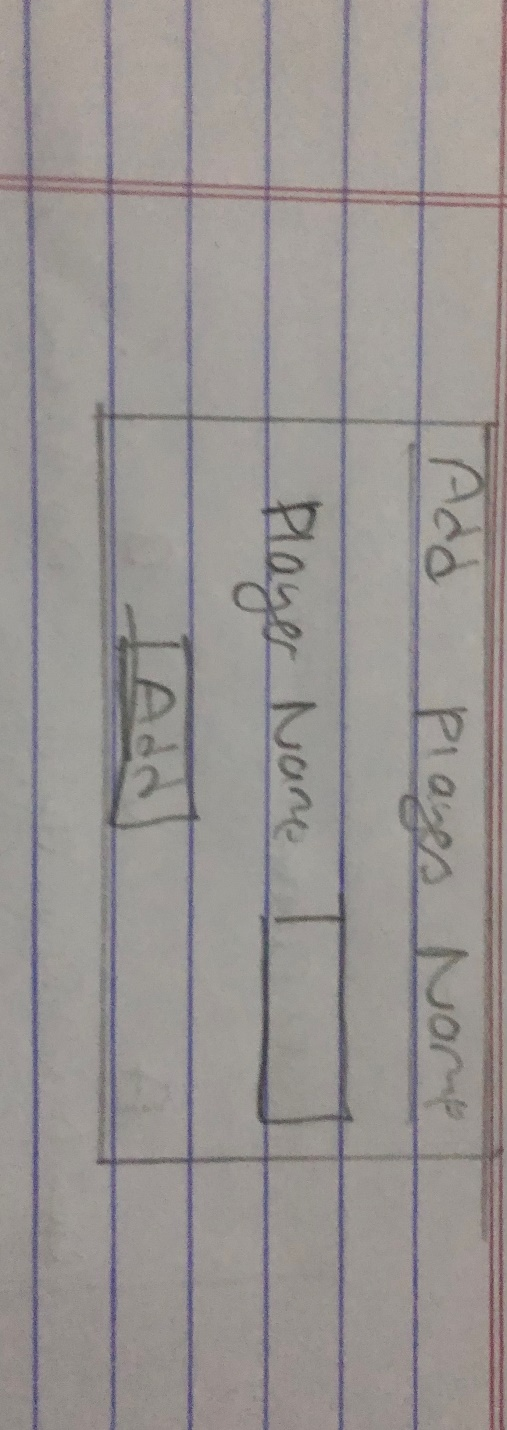 Add Players Name
Player Name
Add